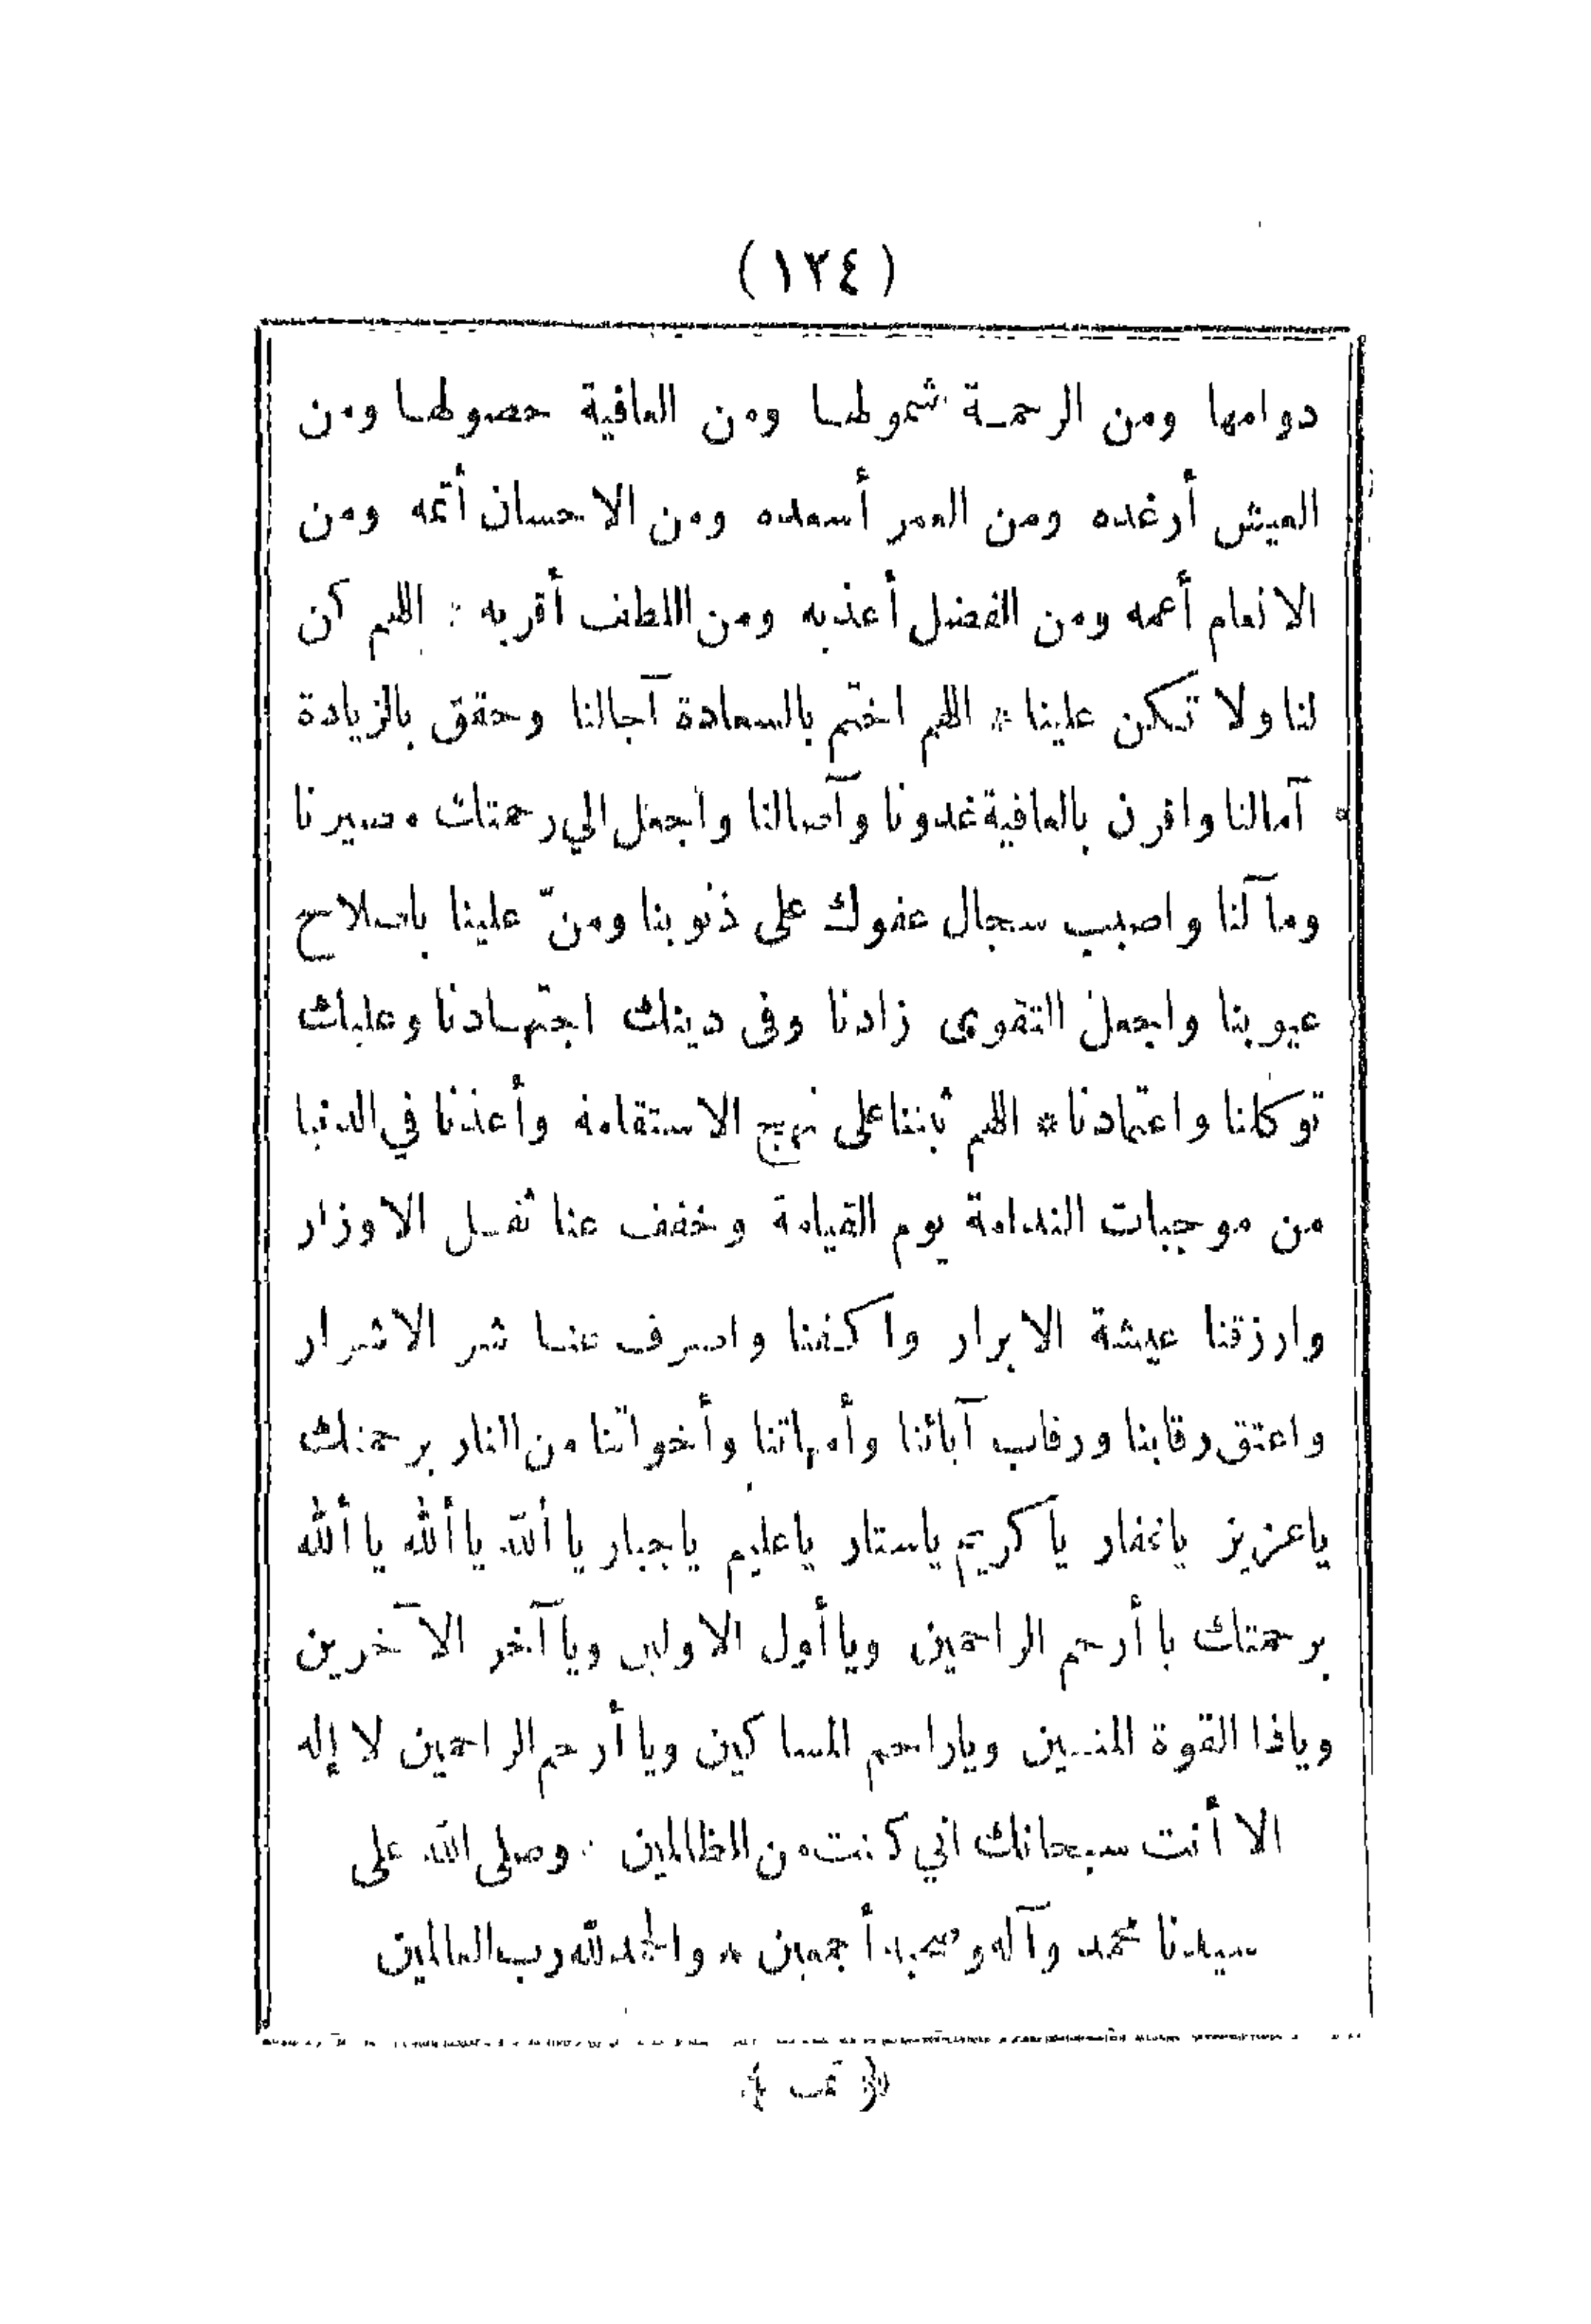 (١٢٤)
دوامها ومن الرحمة شمولها ومن العافية حصولها ومن
العيش أرغده ومن العمر أسعده ومن الاحسان أتمه ومن
الانعام أعمه ومن الفضل أعذبه ومن اللطف أقربه * اللهم كن
لنا ولا تكن علينا * اللهم اختم بالسعادة آجالنا وحقق بالزيادة
آمالنا واقرن بالعافية غدونا وآصالنا واجعل الي رحمتك مصيرنا
ومآلنا واصبب سجال عفوك على ذنوبنا ومنّ علينا باصلاح
عيوبنا واجعل التقوى زادنا وفى دينك اجتهادنا وعليك
توكلنا واعتمادنا * اللهم ثبتنا على نهج الاستقامة وأعذنا في الدنيا
من موجبات الندامة يوم القيامة وخفف عنا ثقل الاوزار
وارزقنا عيشة الابرار واكفنا واصرف عنا شر الاشرار
واعتق رقابنا ورقاب آبائنا وأمهاتنا وأخواتنا من النار برحمتك
ياعزيز ياغفار ياكريم ياستار ياعليم ياجبار ياألله ياألله ياألله
برحمتك ياأرحم الراحمين وياأول الاولين وياآخر الآخرين
وياذا القوة المتين وياراحم المساكين وياأرحم الراحمين لا إله
الا أنت سبحانك اني كنت من الظالمين * وصلى الله على
سيدنا محمد وآله وصحبه أجمعين * والحمد لله رب العالمين
﴿ تمت ﴾